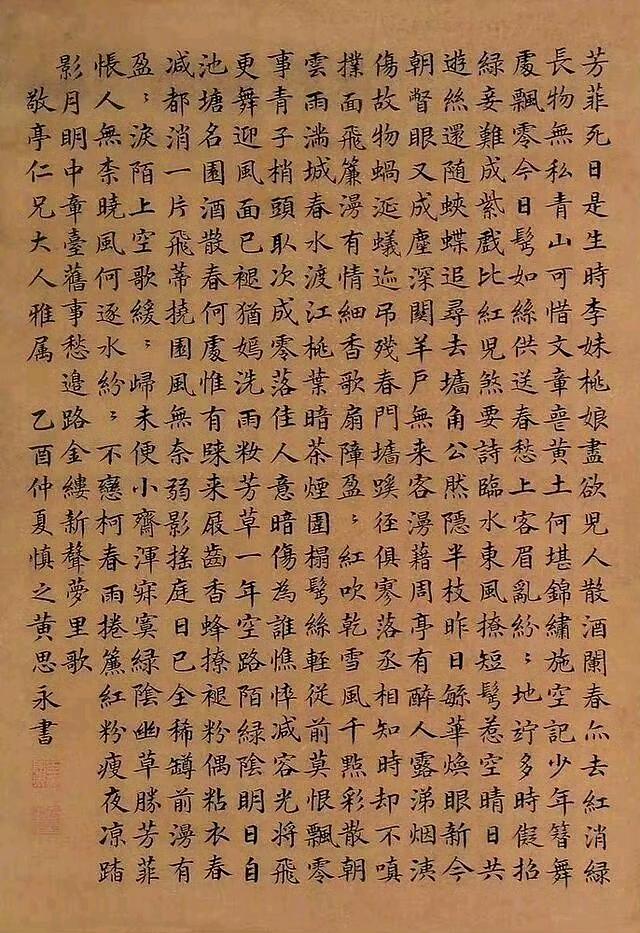 芳菲死日是生時李妹桃娘盡欲兒人散酒闌春亦去紅消綠
長物無私青山可惜文章喪黃土何堪錦繡施空記少年簪舞
處飄零今日鬢如絲供送春愁上客眉亂紛〻地竚多時假招
綠妾難成紫戲比紅兒煞要詩臨水東風撩短鬢惹空晴日共
遊絲還隨蛺蝶追尋去墻角公然隱半枝昨日繁華煥眼新今
朝瞥眼又成塵深關羊戶無来客漫藉周亭有醉人露涕烟洟
傷故物蝸涎蟻迹吊殘春門墻蹊徑俱寥落丞相知時却不嗔
撲面飛簾漫有情細香歌扇障盈〻紅吹乾雪風千點彩散朝
雲雨滿城春水渡江桃葉暗茶煙園榻鬢絲輕従前莫恨飄零
事青子梢頭取次成零落佳人意暗傷為誰憔悴减容光將飛
更舞迎風面已褪猶嫣洗雨妝芳草一年空路陌綠陰明日自
池塘名園酒散春何處惟有踈来屐齒香蜂撩褪粉偶粘衣春
减都消一片飛蒂撓園風無奈弱影搖庭日已全稀罇前漫有
盈〻淚陌上空歌緩〻歸未便小齋渾寂寞綠陰幽草勝芳菲
悵人無柰曉風何逐水紛〻不戀柯春雨捲簾紅粉瘦夜凉踏
影月明中章臺舊事愁邊路金縷新聲夢里歌
敬亭仁兄大人雅属 乙酉仲夏慎之黃思永書